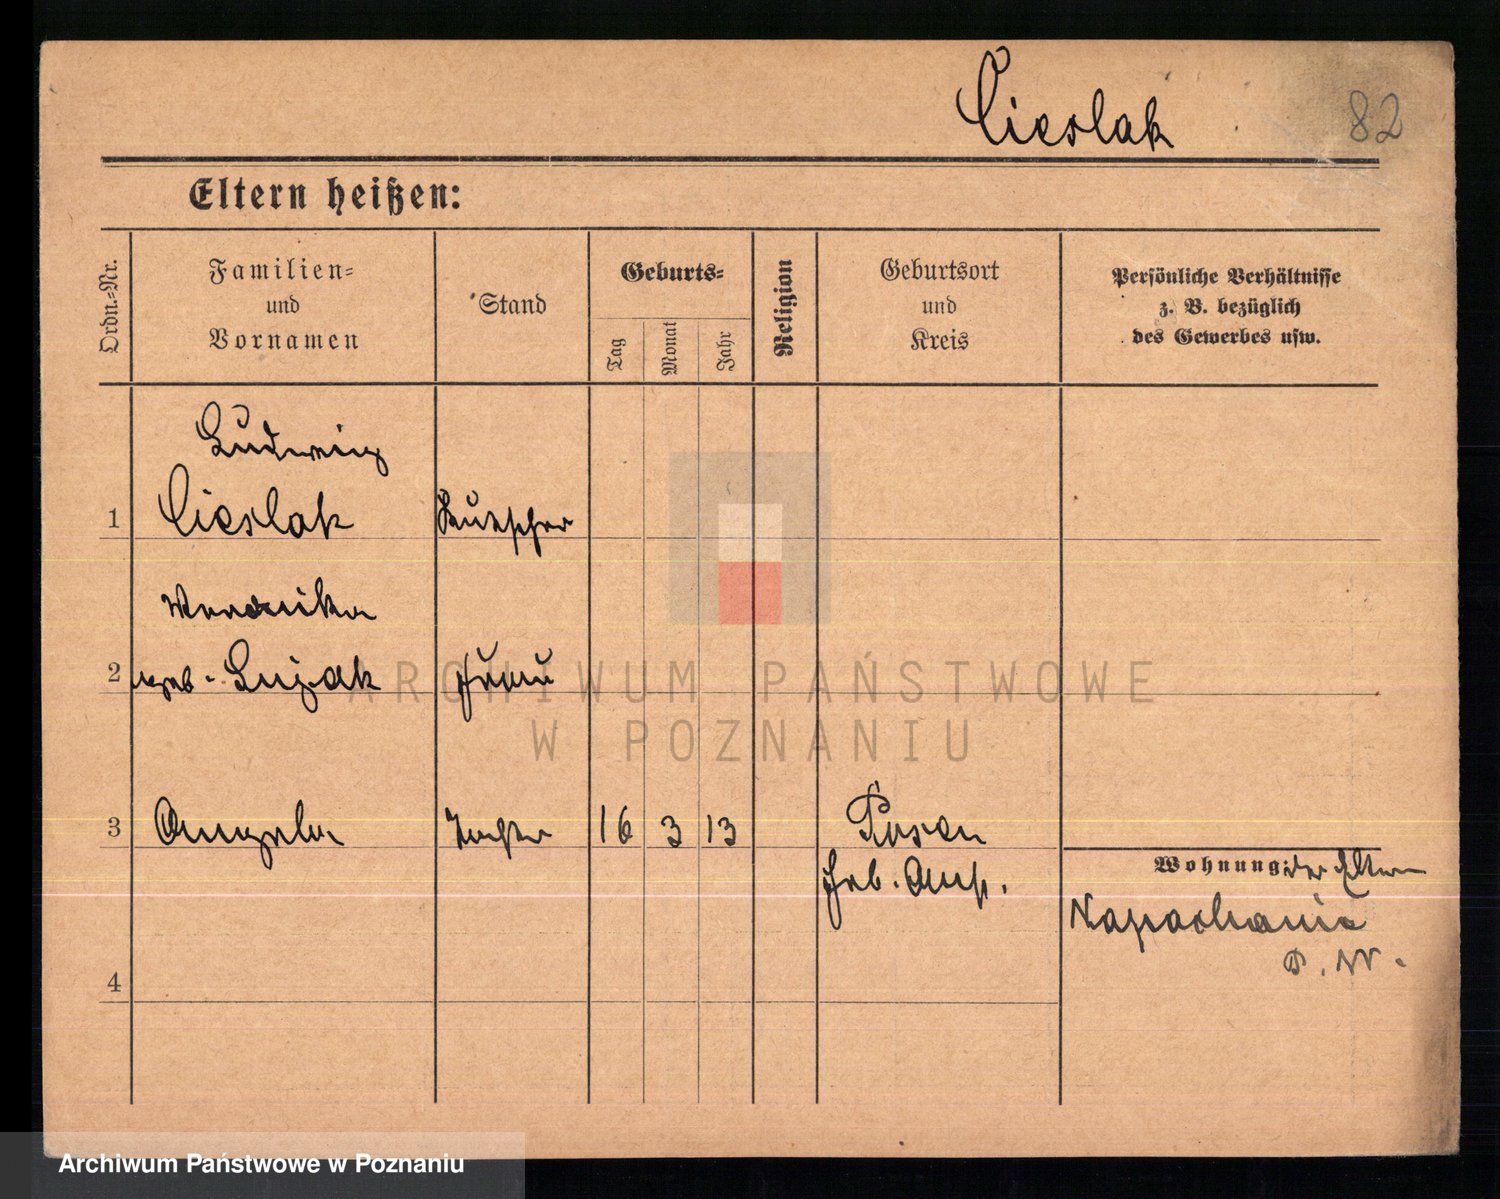 Cieslak 82
Eltern heißen:
Ordn.-Nr.
Familien-
und
Vornamen
Stand
Geburts-
Tag
Monat
Jahr
Religion
Geburtsort
und
Kreis
Persönliche Verhältnisse
z. B. bezüglich
des Gewerbes usw.
Ludwig
1 Cieslak Kutscher
Veronika
2 geb. Frau
3 Angela Tochter 16 3 13 Posen
Geb. Anst.
Wohnung: der Eltern
Napachanie
P. W.
4
ARCHIWUM PAŃSTWOWE
W POZNANIU
Archiwum Państwowe w Poznaniu